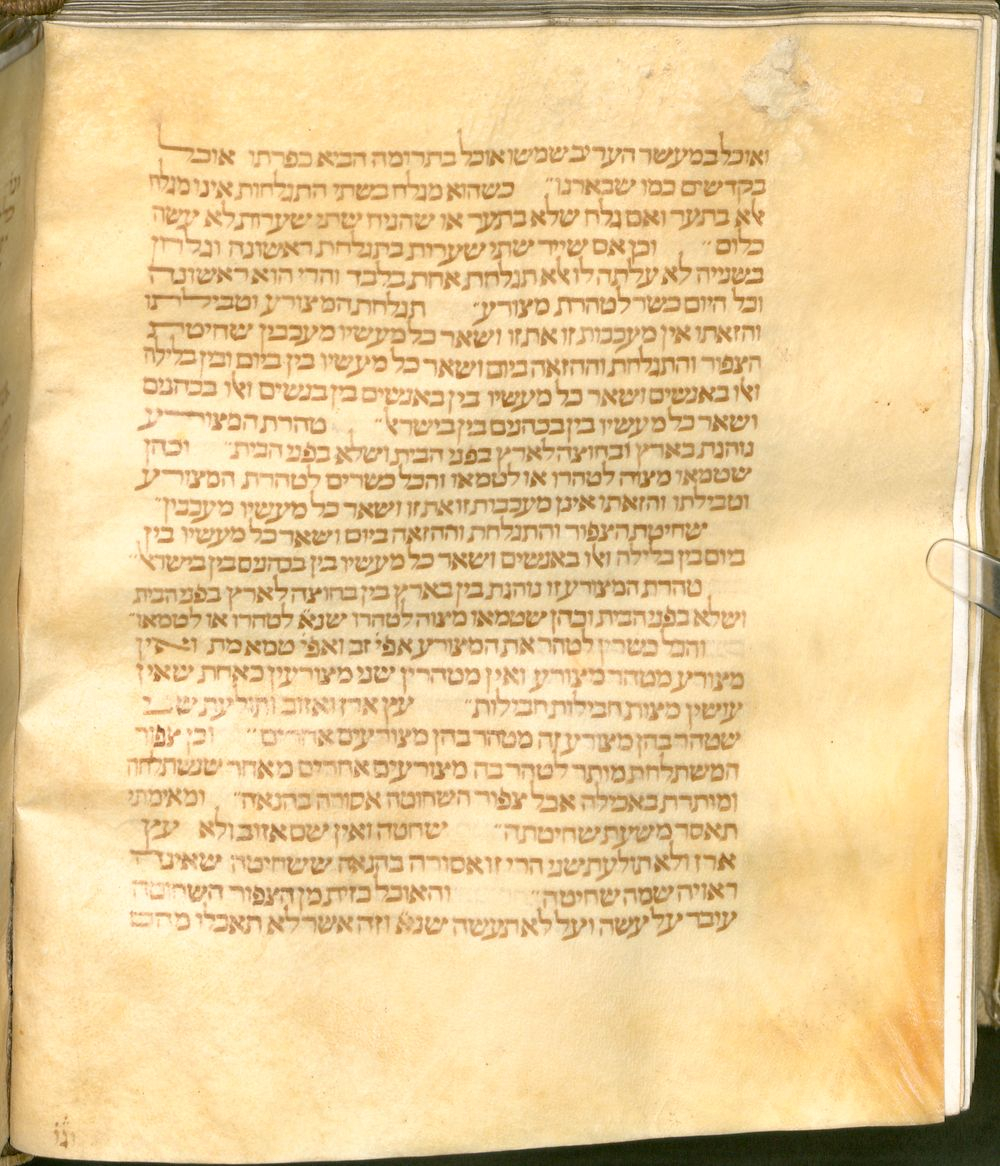 ואוכל במעשר העריב שמשו אוכל בתרומה הביא כפרתו אוכל
בקדשים כמו שבארנו״ כשהוא מגלח בשתי התגלחות אינו מגלח
אלא בתער ואם גלח שלא בתער או שהניח שתי שערות לא עשה
כלום״ וכן אם שייר שתי שערות בתגלחת ראשונה וגלחן
בשנייה לא עלתה לו אלא תגלחת אחת בלבד והרי הוא ראשונה
וכל היום כשר לטהרת מצורע״ תגלחת המצורע וטבילתו
והזאתו אין מעכבות זו את זו ושאר כל מעשיו מעכבין שחיטת
הצפור והתגלחת וההזאה ביום ושאר כל מעשיו בין ביום ובין בלילה
ואלו באנשים ושאר כל מעשיו בין באנשים בין בנשים ואלו בכהנים
ושאר כל מעשיו בין בכהנים בין בישראל״ טהרת המצורע
נוהגת בארץ ובחוצה לארץ בפני הבית ושלא בפני הבית״ וכהן
שטמאו מצוה לטהרו או לטמאו והכל כשרים לטהרת המצורע
וטבילתו והזאתו אינן מעכבות זו את זו ושאר כל מעשיו מעכבין״
שחיטת הצפור והתגלחת וההזאה ביום ושאר כל מעשיו בין
ביום בין בלילה ואלו באנשים ושאר כל מעשיו בין בכהנים בין בישראל״
טהרת המצורע זו נוהגת בין בארץ בין בחוצה לארץ בפני הבית
ושלא בפני הבית וכהן שטמאו מצוה לטהרו שנא׳ לטהרו או לטמאו״
והכל כשרין לטהר את המצורע אפי׳ זב ואפי׳ טמא מת ואין
מצורע מטהר מצורע ואין מטהרין שני מצורעין כאחת שאין
עושין מצות חבילות חבילות״ עץ ארז ואזוב ותולעת שני
שטהר בהן מצורע זה מטהר בהן מצורעים אחרים״ וכן צפור
המשתלחת מותר לטהר בה מצורעים אחרים מאחר שנשתלחה
ומותרת באכילה אבל צפור השחוטה אסורה בהנאה״ ומאימתי
תאסר משעת שחיטתה״ שחטה ואין שם אזוב ולא עץ
ארז ולא תולעת שני הרי זו אסורה בהנאה ששחיטה שאינה
ראויה שמה שחיטה״ והאוכל כזית מן הצפור השחוטה
עובר על עשה ועל לא תעשה שנא׳ וזה אשר לא תאכלו מהם